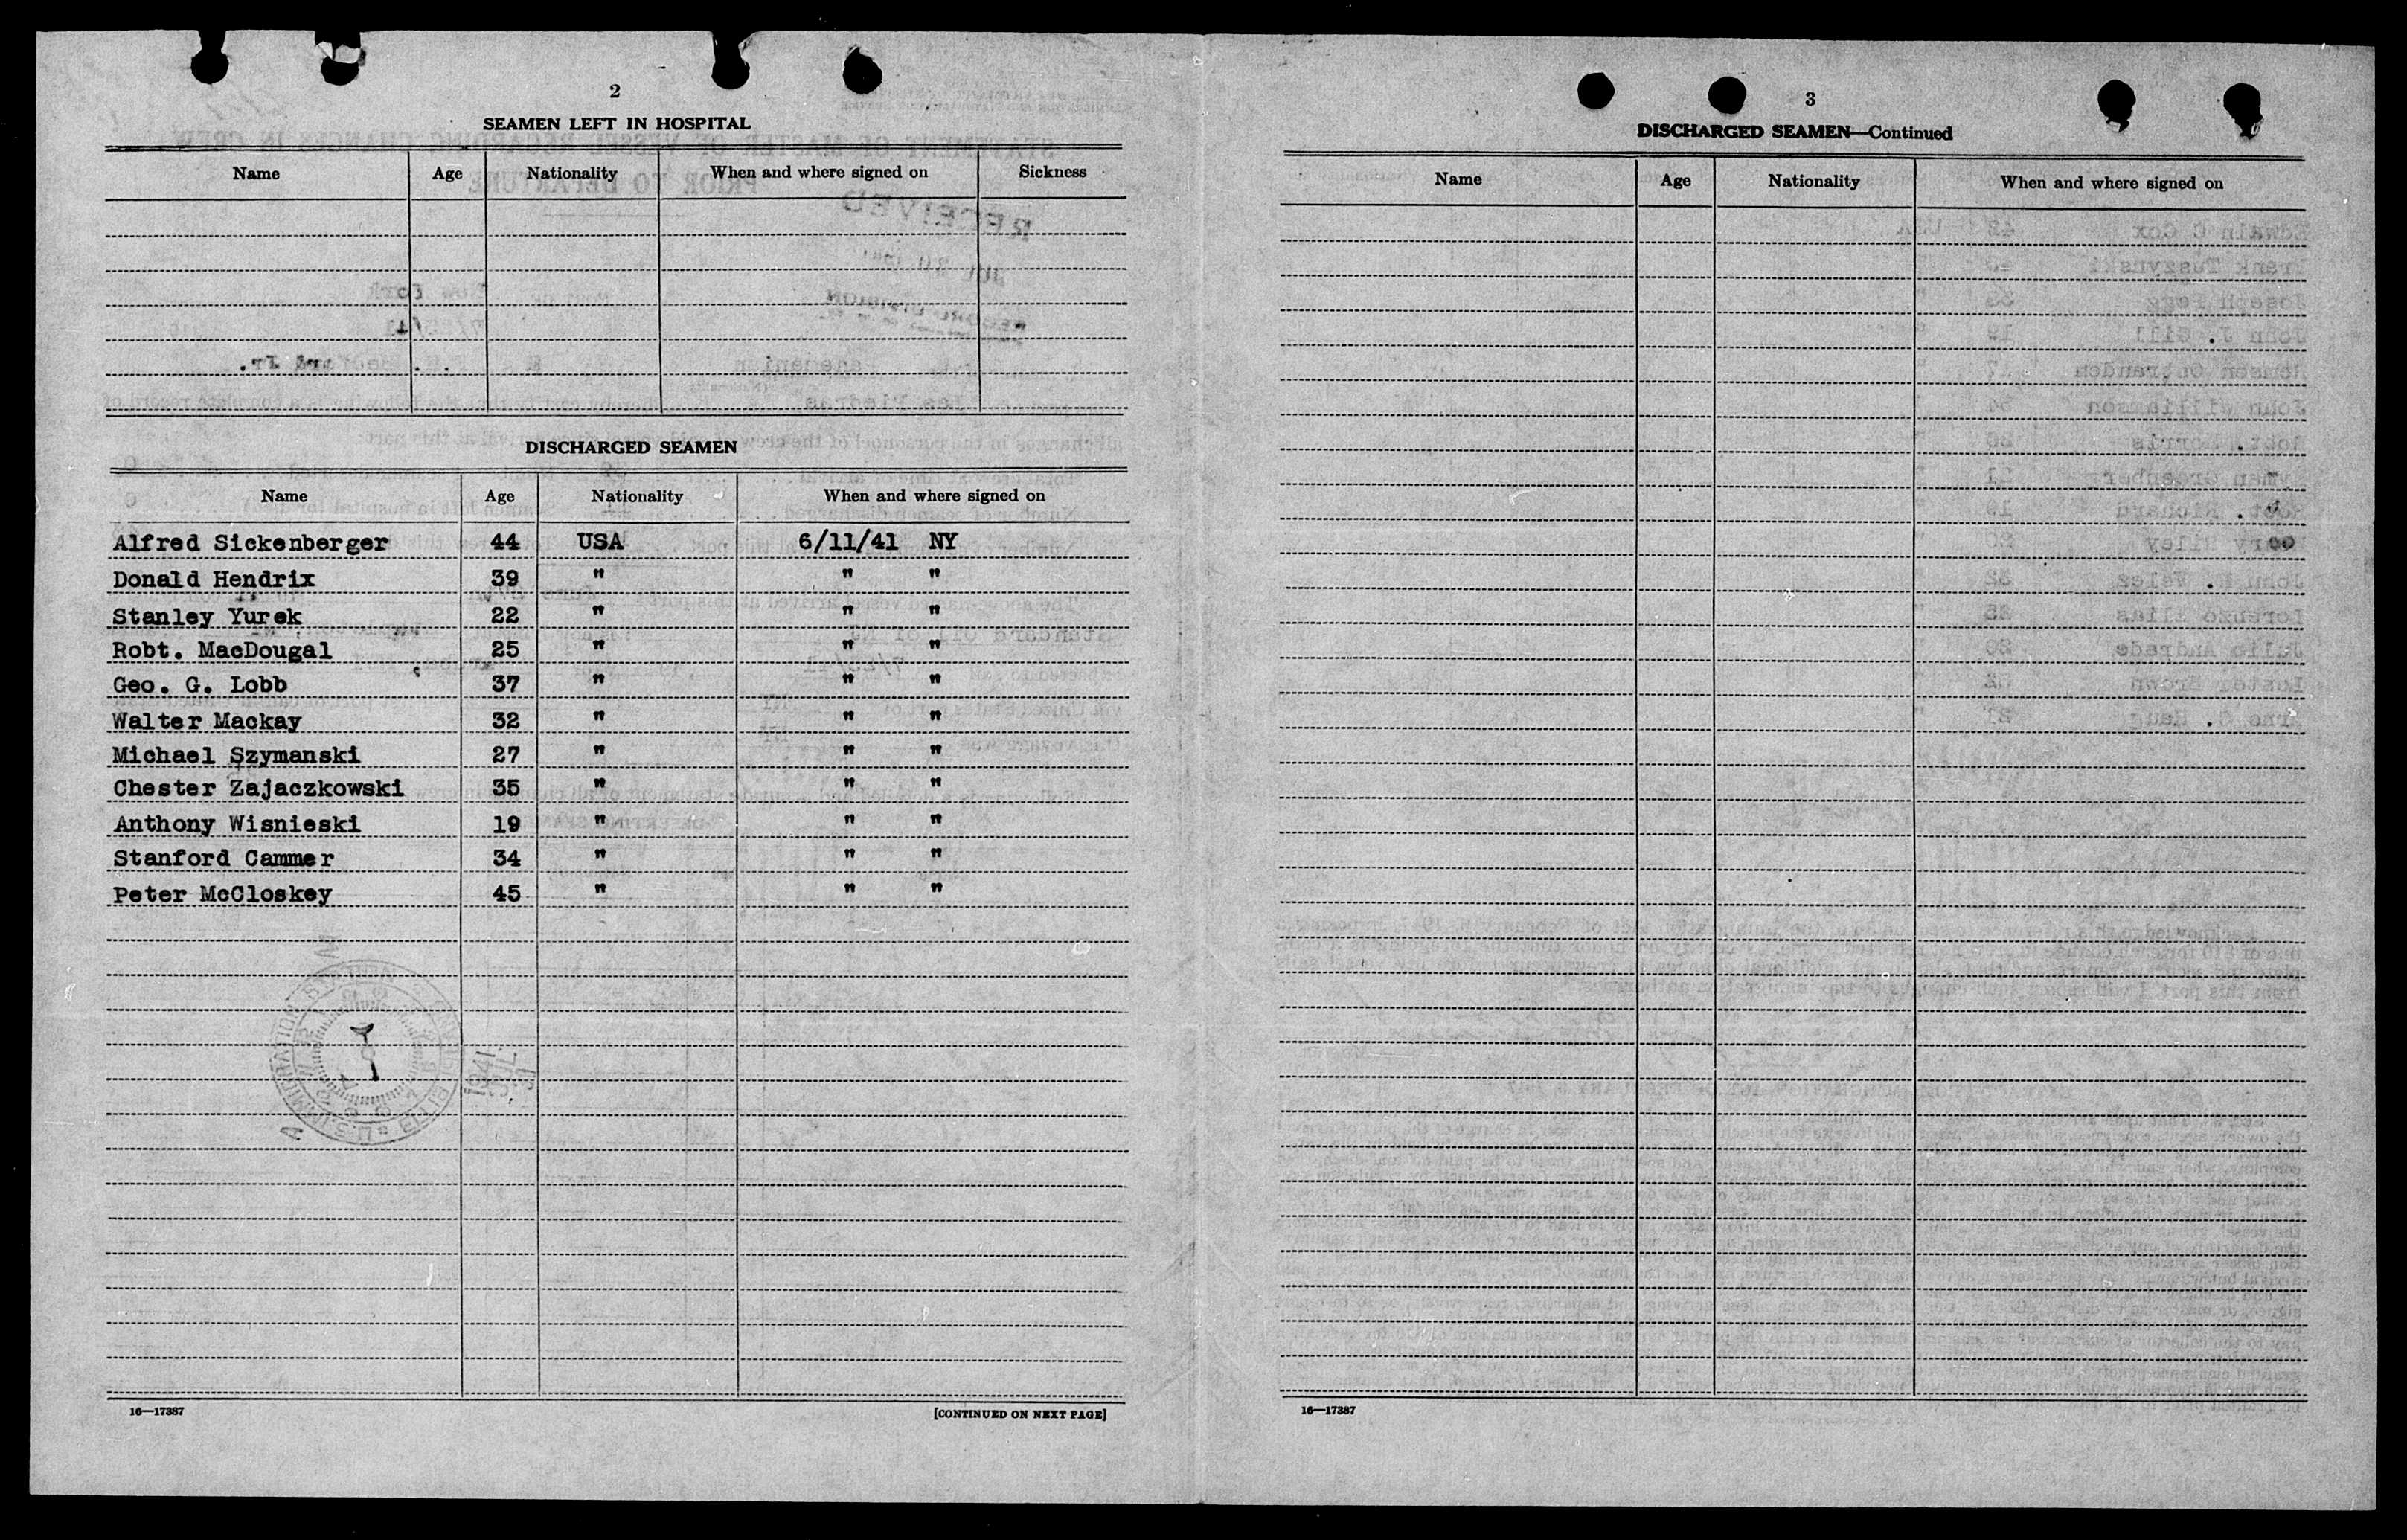 2
SEAMEN LEFT IN HOSPITAL
Name Age Nationality When and where signed on Sickness
DISCHARGED SEAMEN
Name Age Nationality When and where signed on
Alfred Sickenberger 44 USA 6/11/41 NY
Donald Hendrix 39 " " "
Stanley Yurek 22 " " "
Robt. MacDougal 25 " " "
Geo. G. Lobb 37 " " "
Walter Mackay 32 " " "
Michael Szymanski 27 " " "
Chester Zajaczkowski 35 " " "
Anthony Wisnieski 19 " " "
Stanford Cammer 34 " " "
Peter McCloskey 45 " " "
1941
16—17387 [CONTINUED ON NEXT PAGE]
3
DISCHARGED SEAMEN—Continued
Name Age Nationality When and where signed on
16—17387